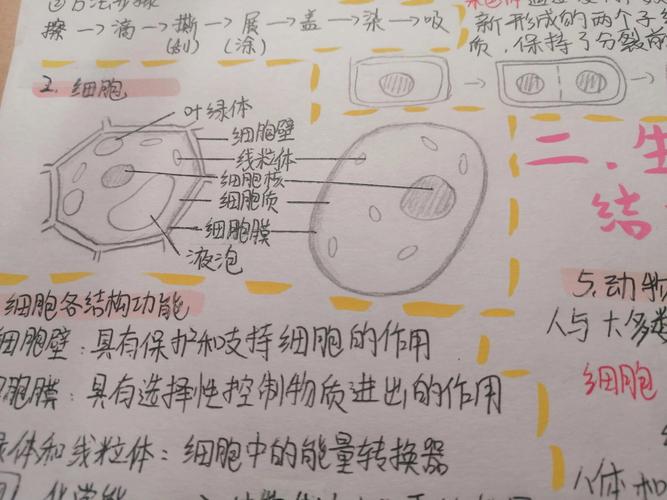 ②方法步骤
擦→滴→撕→展→盖→染→吸
(刮) (涂)
新形成的两个子
质，保持了分裂前
2. 细胞
叶绿体
细胞壁
线粒体
细胞核
细胞质
细胞膜
液泡
二.生
结
细胞各结构功能
细胞壁：具有保护和支持细胞的作用
胞膜：具有选择性控制物质进出的作用
绿体和线粒体：细胞中的能量转换器
5.动物
人与大多数
细胞
八体和